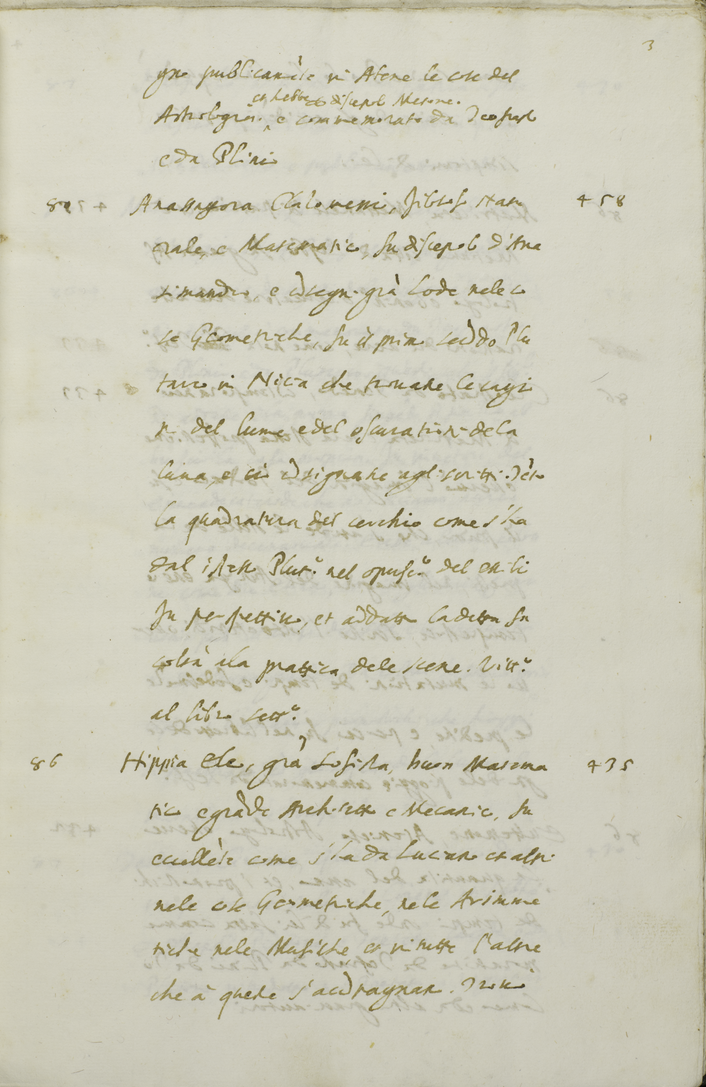 3
gno publicamēte in Atene le cose del
et hebbe discepolo Metone.
Astrologia. e commemorato da Teofrasto
e da Plinio
Anassagora Clazomenio, filosofo natu 458
rale, e Matematico, fu discepolo d'Ana
simandro e cōseguì grā lode nele co
se Geometriche, fu il primo secōdo Plu
tarco in Nicia che trovasse le cagio
ni del lume e del oscurationi dela
luna, e ciò cōsignasse agli scritti.
la quadratura del cerchio come s'ha
dal istesso Plut.º nel opusc.º del exilio
fu perspettivo, et addattò la detta fa
coltà ala prattica dele scene. Vitt.º
al libro sett.º
86 Hippia Eleo, grā Sofista, buon Matema 435
tico e grāde Architetto e Mecanico, fu
eccellēte come s'ha da Luciano et altri
nele cose Geometriche, nele Arimme
tiche nele Musiche et in tutte l'altre
che à queste s'accōpagnano.